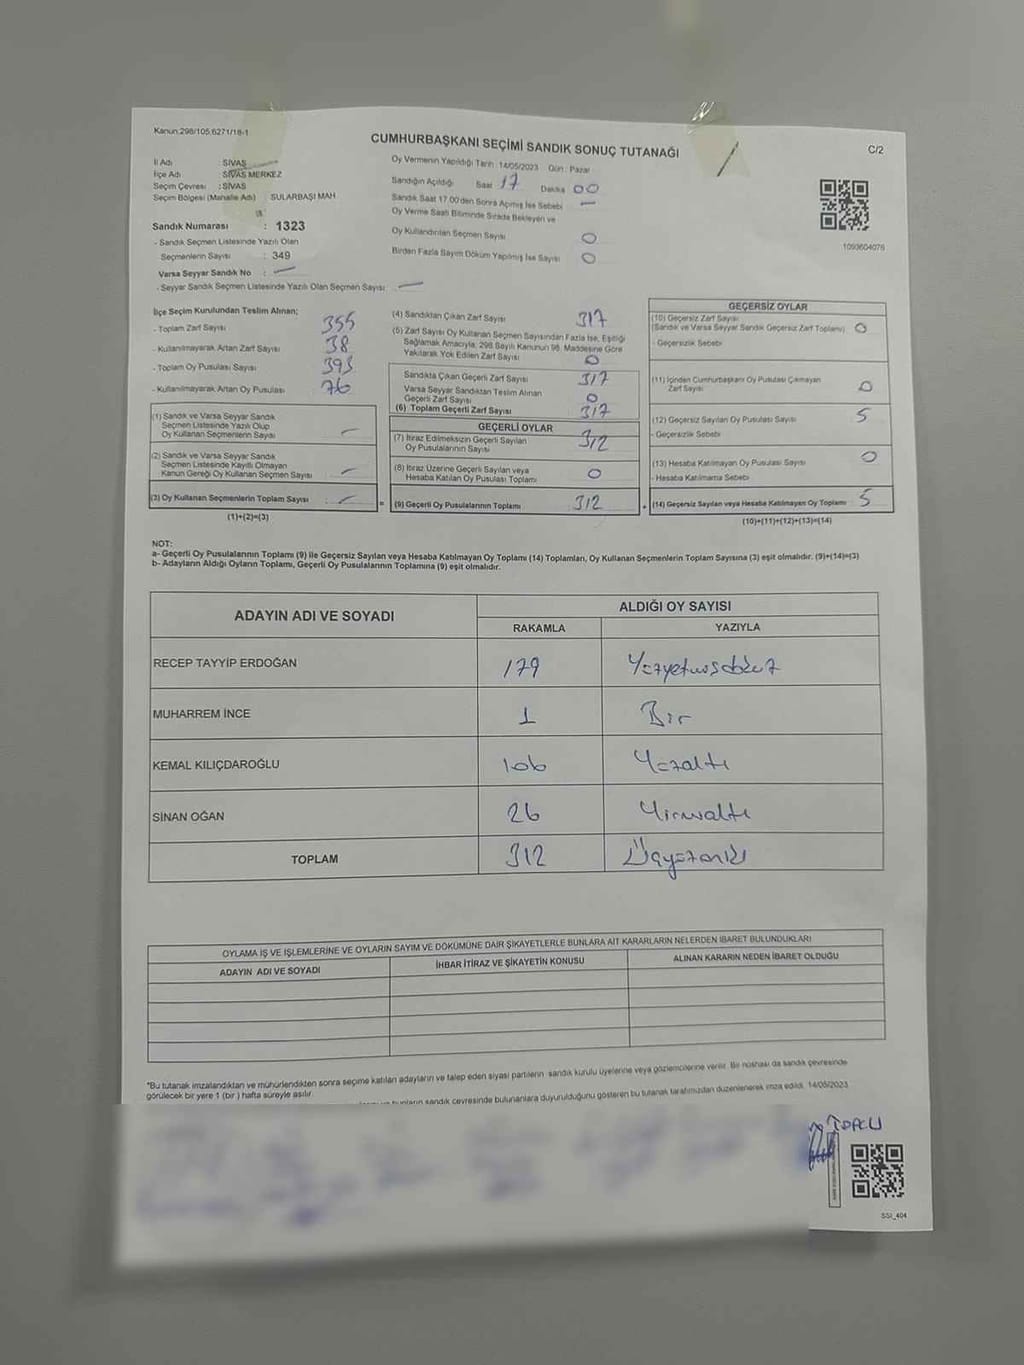 Kanun:298/105.6271/18-1
CUMHURBAŞKANI SEÇİMİ SANDIK SONUÇ TUTANAĞI
C/2
İl Adı : SİVAS
İlçe Adı : SİVAS MERKEZ
Seçim Çevresi : SİVAS
Seçim Bölgesi (Mahalle Adı) SULARBAŞI MAH
Sandık Numarası : 1323
- Sandık Seçmen Listesinde Yazılı Olan
Seçmenlerin Sayısı : 349
Varsa Seyyar Sandık No : —
- Seyyar Sandık Seçmen Listesinde Yazılı Olan Seçmen Sayısı: —
Oy Vermenin Yapıldığı Tarih: 14/05/2023 Gün: Pazar
Sandığın Açıldığı Saat 17 Dakika 00
Sandık Saat 17.00'den Sonra Açımış İse Sebebi —
Oy Verme Saati Bitiminde Sırada Bekleyen ve
Oy Kullandırılan Seçmen Sayısı 0
Birden Fazla Sayım Döküm Yapılmış İse Sayısı 0
1093604076
İlçe Seçim Kurulundan Teslim Alınan;
- Toplam Zarf Sayısı 355
- Kullanılmayarak Artan Zarf Sayısı 38
- Toplam Oy Pusulası Sayısı 393
- Kullanılmayarak Artan Oy Pusulası 76
(1) Sandık ve Varsa Seyyar Sandık
Seçmen Listesinde Yazılı Olup
Oy Kullanan Seçmenlerin Sayısı —
(2) Sandık ve Varsa Seyyar Sandık
Seçmen Listesinde Kayıtlı Olmayan
Kanun Gereği Oy Kullanan Seçmen Sayısı —
(3) Oy Kullanan Seçmenlerin Toplam Sayısı —
(1)+(2)=(3)
(4) Sandıktan Çıkan Zarf Sayısı 317
(5) Zarf Sayısı Oy Kullanan Seçmen Sayısından Fazla İse, Eşitliği
Sağlamak Amacıyla, 298 Sayılı Kanunun 98. Maddesine Göre
Yakılarak Yok Edilen Zarf Sayısı 0
Sandıkta Çıkan Geçerli Zarf Sayısı 317
Varsa Seyyar Sandıktan Teslim Alınan
Geçerli Zarf Sayısı 0
(6) Toplam Geçerli Zarf Sayısı 317
GEÇERLİ OYLAR
(7) İtiraz Edilmeksizin Geçerli Sayılan
Oy Pusulalarının Sayısı 312
(8) İtiraz Üzerine Geçerli Sayılan veya
Hesaba Katılan Oy Pusulası Toplamı 0
= (9) Geçerli Oy Pusulalarının Toplamı 312
GEÇERSİZ OYLAR
(10) Geçersiz Zarf Sayısı
(Sandık ve Varsa Seyyar Sandık Geçersiz Zarf Toplamı) 0
- Geçersizlik Sebebi
(11) İçinden Cumhurbaşkanı Oy Pusulası Çıkmayan
Zarf Sayısı 0
(12) Geçersiz Sayılan Oy Pusulası Sayısı 5
- Geçersizlik Sebebi
(13) Hesaba Katılmayan Oy Pusulası Sayısı 0
- Hesaba Katılmama Sebebi
+ (14) Geçersiz Sayılan veya Hesaba Katılmayan Oy Toplamı 5
(10)+(11)+(12)+(13)=(14)
NOT:
a- Geçerli Oy Pusulalarının Toplamı (9) ile Geçersiz Sayılan veya Hesaba Katılmayan Oy Toplamı (14) Toplamları, Oy Kullanan Seçmenlerin Toplam Sayısına (3) eşit olmalıdır. (9)+(14)=(3)
b- Adayların Aldığı Oyların Toplamı, Geçerli Oy Pusulalarının Toplamına (9) eşit olmalıdır.
ADAYIN ADI VE SOYADI
ALDIĞI OY SAYISI
RAKAMLA YAZIYLA
RECEP TAYYİP ERDOĞAN 179 Yüzyetmişdokuz
MUHARREM İNCE 1 Bir
KEMAL KILIÇDAROĞLU 106 Yüzaltı
SİNAN OĞAN 26 Yirmialtı
TOPLAM 312 Üçyüzoniki
OYLAMA İŞ VE İŞLEMLERİNE VE OYLARIN SAYIM VE DÖKÜMÜNE DAİR ŞİKAYETLERLE BUNLARA AİT KARARLARIN NELERDEN İBARET BULUNDUKLARI
ADAYIN ADI VE SOYADI İHBAR İTİRAZ VE ŞİKAYETİN KONUSU ALINAN KARARIN NEDEN İBARET OLDUĞU
*Bu tutanak imzalandıktan ve mühürlendikten sonra seçime katılan adayların ve talep eden siyasi partilerin sandık kurulu üyelerine veya gözlemcilerine verilir. Bir nüshası da sandık çevresinde
görülecek bir yere 1 (bir) hafta süreyle asılır.
sandık çevresinde bulunanlara duyurulduğunu gösteren bu tutanak tarafımızdan düzenlenerek imza edildi. 14/05/2023
SSI_404